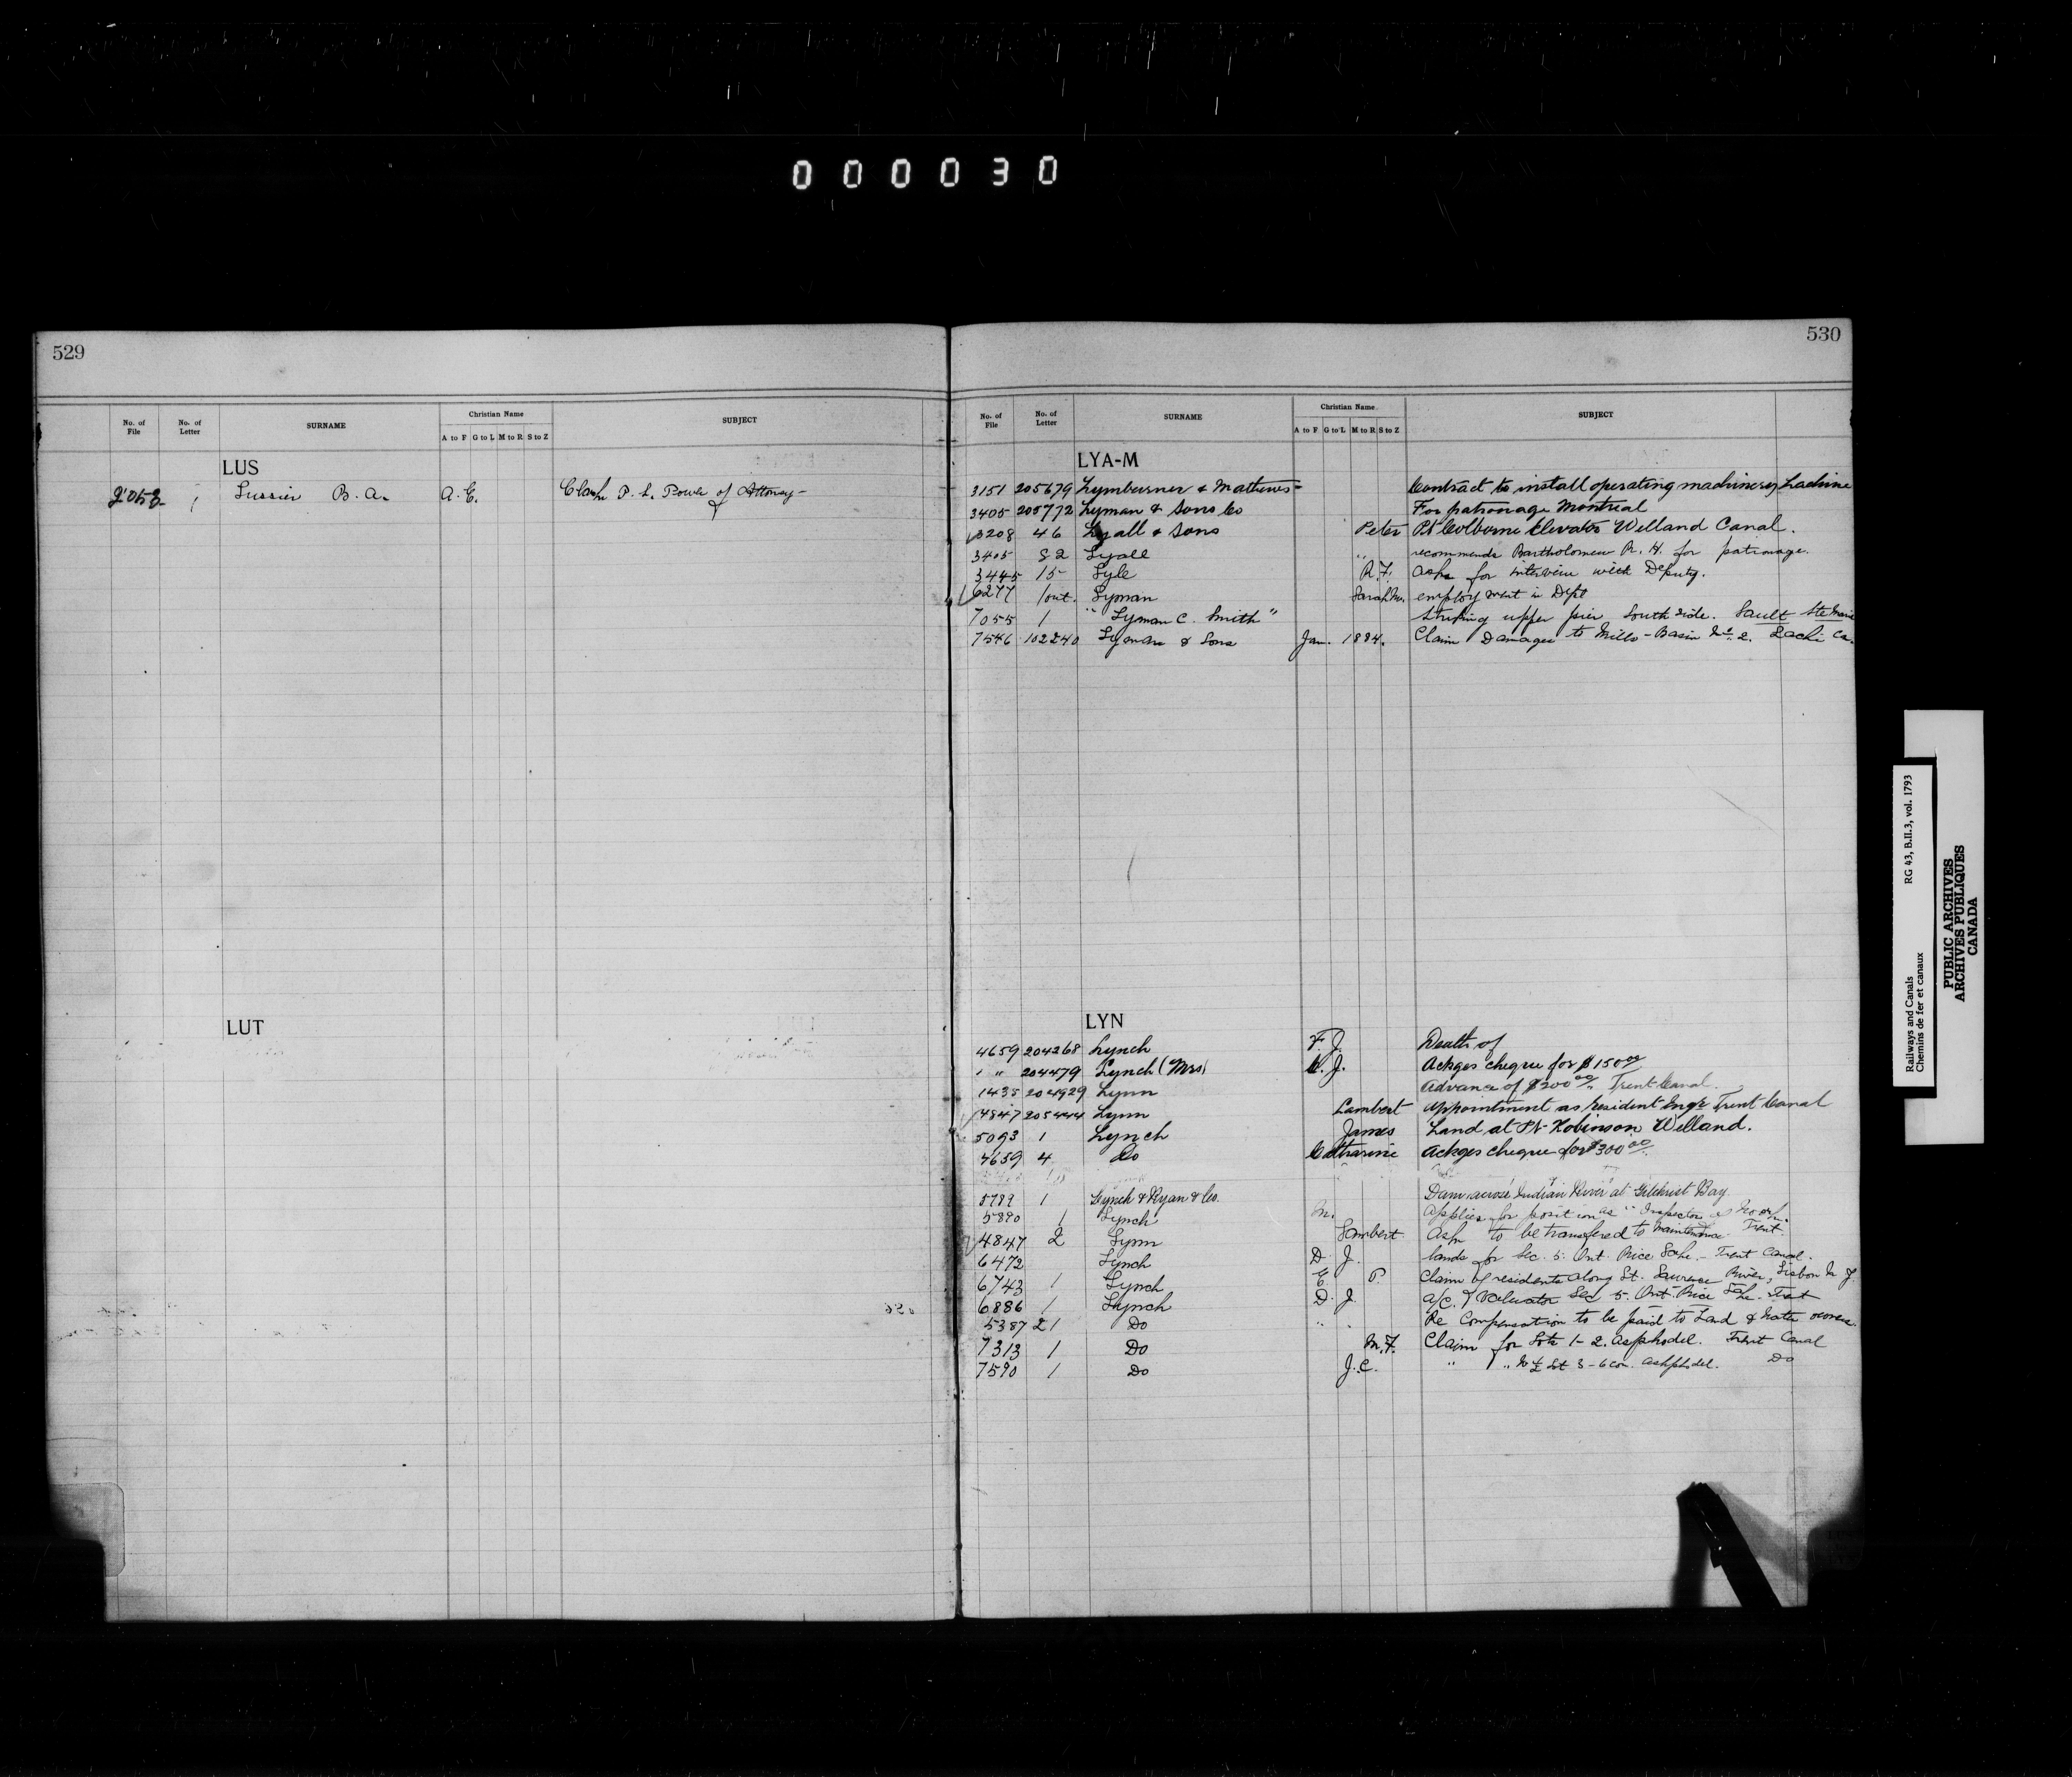 000030
529
No. of File No. of Letter SURNAME Christian Name SUBJECT
A to F G to L M to R S to Z
LUS
1 Lussier B. A. A. E. P. L. Power of Attorney -
LUT
530
No. of File No. of Letter SURNAME Christian Name SUBJECT
A to F G to L M to R S to Z
LYA-M
3151 205679 Lymburner & Mathews - Contract to install operating machinery Lachine
3405 205772 Lyman & Sons Co For patronage Montreal
3208 46 Lyall & Sons Peter Pt Colborne Elevator Welland Canal.
3405 82 Lyall " recommends Bartholomew R. H. for patronage.
3445 15 Lyle R.F. asks for interview with Deputy.
6277 1 out. Lyman Sarah M. employment in Dept
7055 1 "Lyman C. Smith" Striking upper pier South side. Sault Ste Marie
7546 102240 Lyman & Sons Jan. 1884. Claim Damages to Mills - Basin No. 2. Lachi Ca.
LYN
4659 204268 Lynch F. J. Death of
" 204479 Lynch (Mrs) J. Ackges cheque for $150 00
1435 204929 Lynn Advance of $200 00 Trent Canal.
4847 205444 Lynn Lambert appointment as resident Engr Trent Canal
5093 1 Lynch James Land at Pt Robinson Welland.
4659 4 Do Catharine Ackges cheque for $300 00
5789 1 Lynch & Ryan & Co. Dam across Indian River at Gilchrist Bay
5890 1 Lynch M. Applies for position as Inspector
4847 2 Lynn Lambert Asks to be transfered to maintenance Trent.
6472 Lynch D. J. lands for Sec. 5. Ont. Rice Lake - Trent Canal.
6743 1 Lynch E P. Claim of residents along St. Lawrence River, Lisbon N. Y.
6886 1 Lynch D. J a/c. of Valuator Sec 5. Ont. Rice Lake Trent
5387 21 Do " . Re Compensation to be paid to Land & Water owners.
7313 1 Do M.F. Claim for Lots 1-2. Asphodel. Trent Canal
7590 1 Do J.C. " " Lot 3 - 6 con. Asphodel. Do
Railways and Canals RG 43, B.II.3, vol. 1793
Chemins de fer et canaux
PUBLIC ARCHIVES
ARCHIVES PUBLIQUES
CANADA